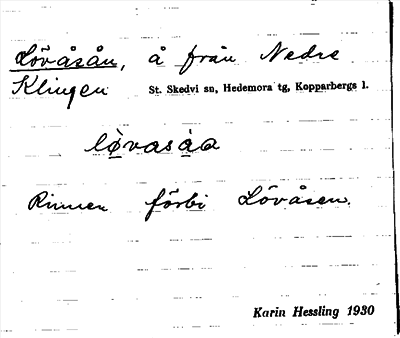 Lövåsån, å från Nedre
Klingen St. Skedvi sn, Hedemora tg, Kopparbergs l.
løvasåa
Rinner förbi Lövåsen.
Karin Hessling 1930